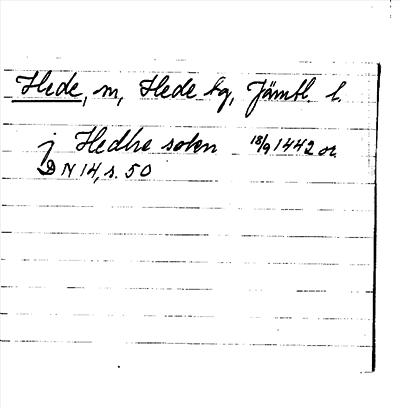 Hede, sn, Hede hg, Jämtl. l.
j Hedhe sokn 18/9 1442 or.
DN 14, s. 50